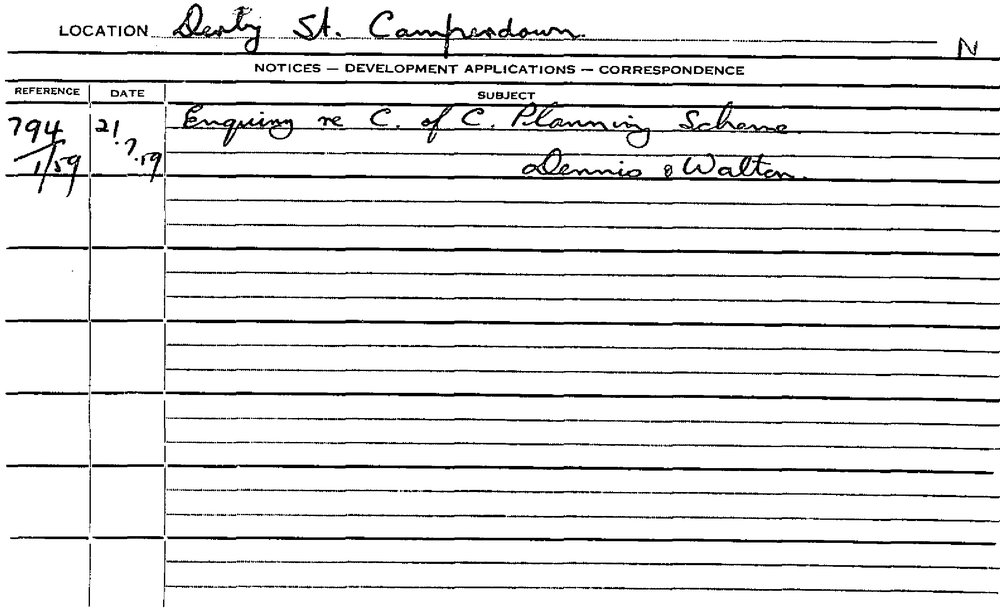 LOCATION Derby St. Camperdown.
N
NOTICES — DEVELOPMENT APPLICATIONS — CORRESPONDENCE
REFERENCE DATE SUBJECT
794 21. Enquiry re C. of C. Planning Scheme
1/59 7.59 Dennis & Walton.